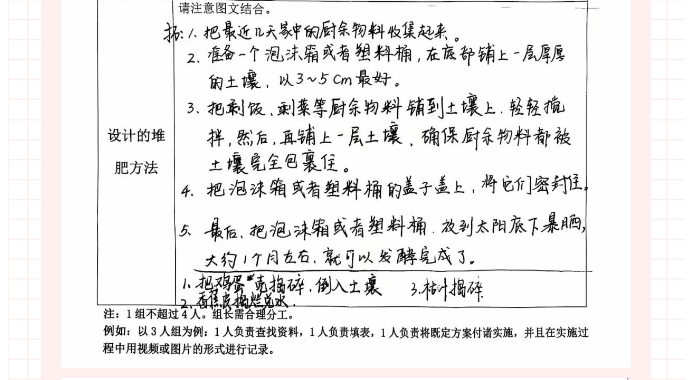 请注意图文结合。
1. 把最近几天家中的厨余物料收集起来。
2. 准备一个泡沫箱或者塑料桶，在底部铺上一层厚厚
的土壤，以3~5cm最好。
3. 把剩饭、剩菜等厨余物料铺到土壤上，轻轻搅
拌，然后，再铺上一层土壤，确保厨余物料都被
土壤完全包裹住。
设计的堆
肥方法
4. 把泡沫箱或者塑料桶的盖子盖上，将它们密封住。
5. 最后，把泡沫箱或者塑料桶，放到太阳底下暴晒，
大约1个月左右，就可以发酵完成了。
1. 把鸡蛋壳捣碎，倒入土壤 3. 枯叶捣碎
2. 香蕉皮捣烂兑水
注：1 组不超过 4 人。组长需合理分工。
例如：以 3 人组为例：1 人负责查找资料，1 人负责填表，1 人负责将既定方案付诸实施，并且在实施过
程中用视频或图片的形式进行记录。